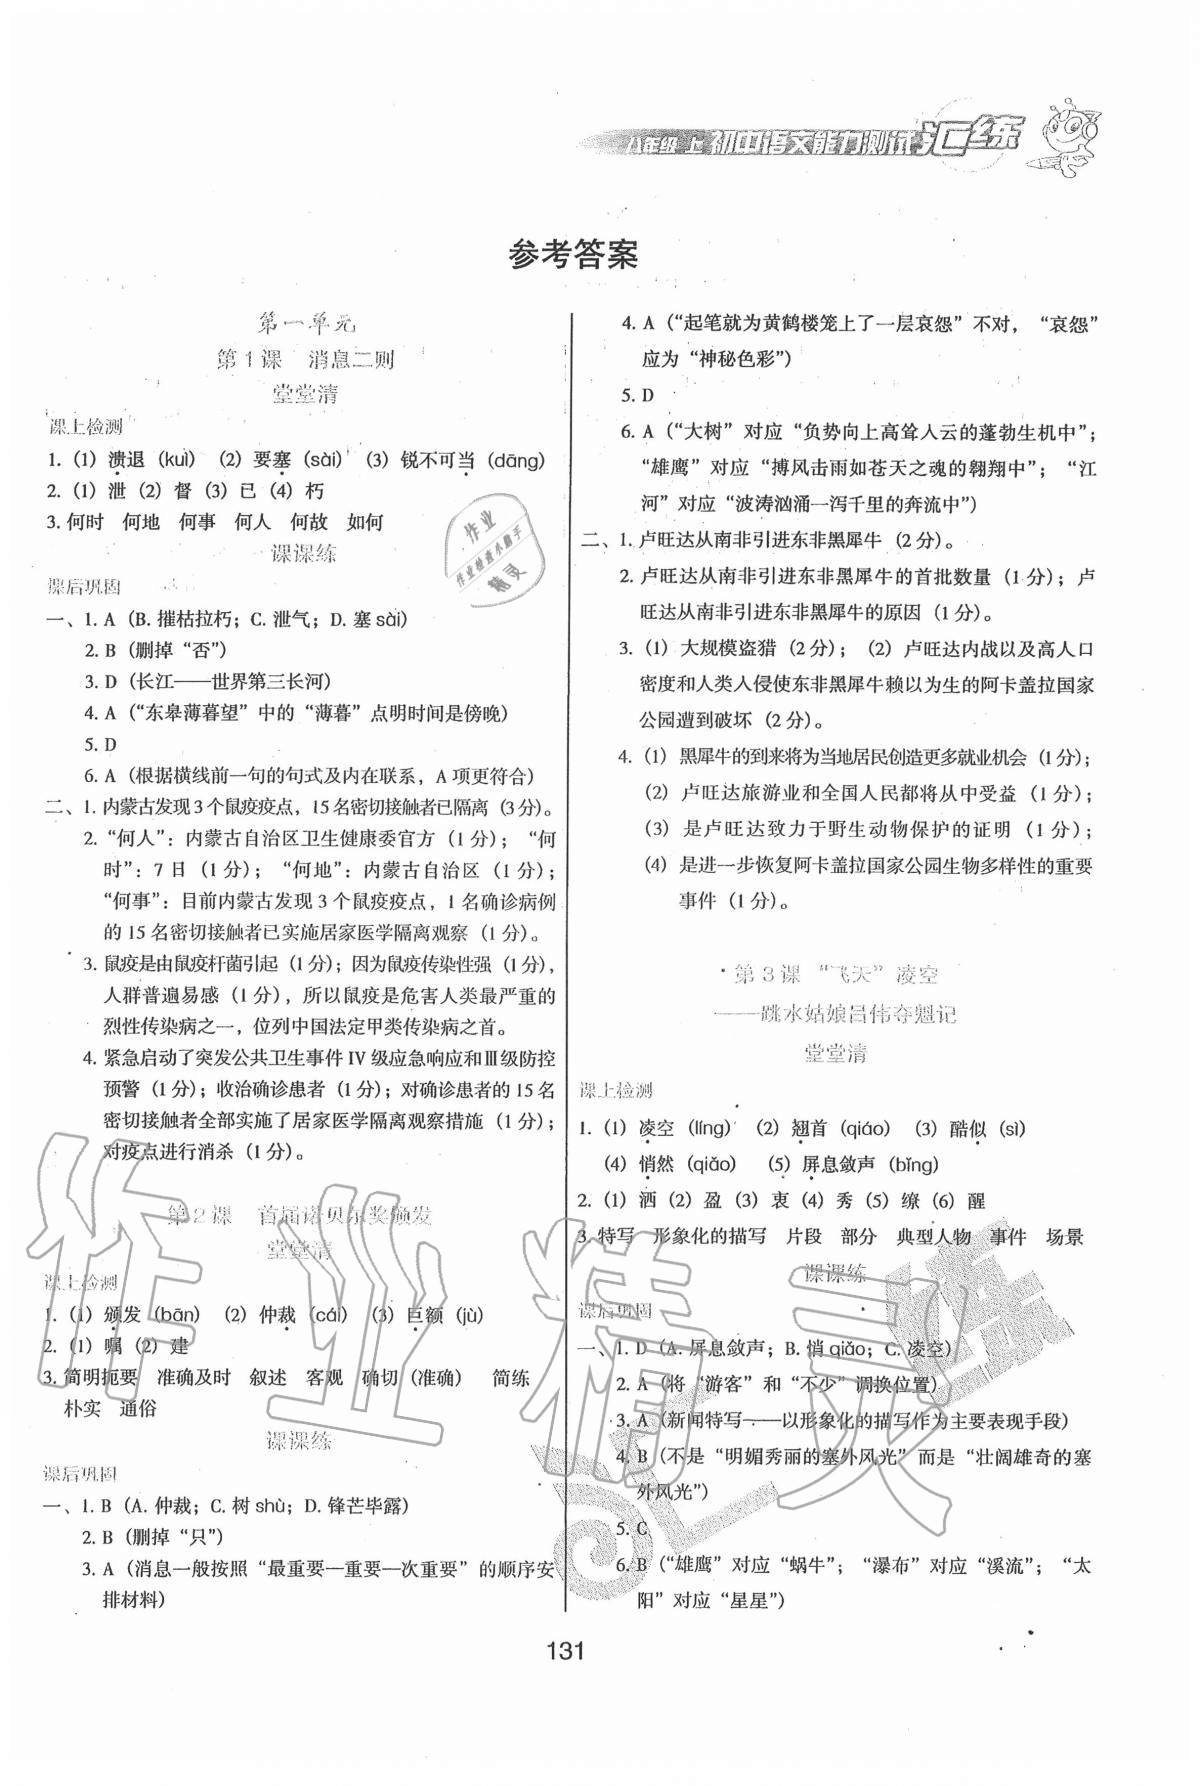 八年级 上 初中语文能力测试汇练
参考答案
第一单元
第1课 消息二则
堂堂清
课上检测
1. (1) 溃退 (kuì) (2) 要塞 (sài) (3) 锐不可当 (dāng)
2. (1) 泄 (2) 督 (3) 已 (4) 朽
3. 何时 何地 何事 何人 何故 如何
课课练
课后巩固
一、1. A (B. 摧枯拉朽；C. 泄气；D. 塞 sài)
2. B (删掉“否”)
3. D (长江——世界第三长河)
4. A (“东皋薄暮望”中的“薄暮”点明时间是傍晚)
5. D
6. A (根据横线前一句的句式及内在联系，A 项更符合)
二、1. 内蒙古发现 3 个鼠疫疫点，15 名密切接触者已隔离 (3 分)。
2. “何人”：内蒙古自治区卫生健康委官方 (1 分)；“何
时”：7 日 (1 分)；“何地”：内蒙古自治区 (1 分)；
“何事”：目前内蒙古发现 3 个鼠疫疫点，1 名确诊病例
的 15 名密切接触者已实施居家医学隔离观察 (1 分)。
3. 鼠疫是由鼠疫杆菌引起 (1 分)；因为鼠疫传染性强 (1 分)，
人群普遍易感 (1 分)，所以鼠疫是危害人类最严重的
烈性传染病之一，位列中国法定甲类传染病之首。
4. 紧急启动了突发公共卫生事件 IV 级应急响应和Ⅲ级防控
预警 (1 分)；收治确诊患者 (1 分)；对确诊患者的 15 名
密切接触者全部实施了居家医学隔离观察措施 (1 分)；
对疫点进行消杀 (1 分)。
第2课 首届诺贝尔奖颁发
堂堂清
课上检测
1. (1) 颁发 (bān) (2) 仲裁 (cái) (3) 巨额 (jù)
2. (1) 嘱 (2) 建
3. 简明扼要 准确及时 叙述 客观 确切 (准确) 简练
朴实 通俗
课课练
课后巩固
一、1. B (A. 仲裁；C. 树 shù；D. 锋芒毕露)
2. B (删掉“只”)
3. A (消息一般按照“最重要—重要—次重要”的顺序安
排材料)
4. A (“起笔就为黄鹤楼笼上了一层哀怨”不对，“哀怨”
应为“神秘色彩”)
5. D
6. A (“大树”对应“负势向上高耸入云的蓬勃生机中”；
“雄鹰”对应“搏风击雨如苍天之魂的翱翔中”；“江
河”对应“波涛汹涌一泻千里的奔流中”)
二、1. 卢旺达从南非引进东非黑犀牛 (2 分)。
2. 卢旺达从南非引进东非黑犀牛的首批数量 (1 分)；卢
旺达从南非引进东非黑犀牛的原因 (1 分)。
3. (1) 大规模盗猎 (2 分)；(2) 卢旺达内战以及高人口
密度和人类入侵使东非黑犀牛赖以为生的阿卡盖拉国家
公园遭到破坏 (2 分)。
4. (1) 黑犀牛的到来将为当地居民创造更多就业机会 (1 分)；
(2) 卢旺达旅游业和全国人民都将从中受益 (1 分)；
(3) 是卢旺达致力于野生动物保护的证明 (1 分)；
(4) 是进一步恢复阿卡盖拉国家公园生物多样性的重要
事件 (1 分)。
第3课 “飞天”凌空
——跳水姑娘吕伟夺魁记
堂堂清
课上检测
1. (1) 凌空 (líng) (2) 翘首 (qiáo) (3) 酷似 (sì)
(4) 悄然 (qiǎo) (5) 屏息敛声 (bǐng)
2. (1) 洒 (2) 盈 (3) 衷 (4) 秀 (5) 缭 (6) 醒
3. 特写 形象化的描写 片段 部分 典型人物 事件 场景
课课练
课后巩固
一、1. D (A. 屏息敛声；B. 悄 qiǎo；C. 凌空)
2. A (将“游客”和“不少”调换位置)
3. A (新闻特写——以形象化的描写作为主要表现手段)
4. B (不是“明媚秀丽的塞外风光”而是“壮阔雄奇的塞
外风光”)
5. C
6. B (“雄鹰”对应“蜗牛”；“瀑布”对应“溪流”；“太
阳”对应“星星”)
131
作业
作业检查小助手
精灵
作业精灵